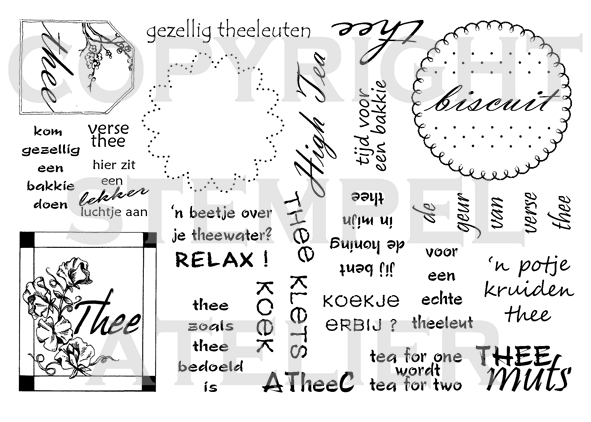 COPYRIGHT
STEMPEL
ATELIER
thee
gezellig theeleuten
thee
biscuit
High Tea
tijd voor
een bakkie
kom
gezellig
een
bakkie
doen
verse
thee
hier zit
een
lekker
luchtje aan
'n beetje over
je theewater?
RELAX !
THEE KLETS
KOEK
jij bent
de honing
in mijn
thee
de
geur
van
verse
thee
Thee
thee
zoals
thee
bedoeld
is
KOEKJE
ERBIJ ?
voor
een
echte
theeleut
'n potje
kruiden
thee
ATheeC
tea for one
wordt
tea for two
THEE
muts